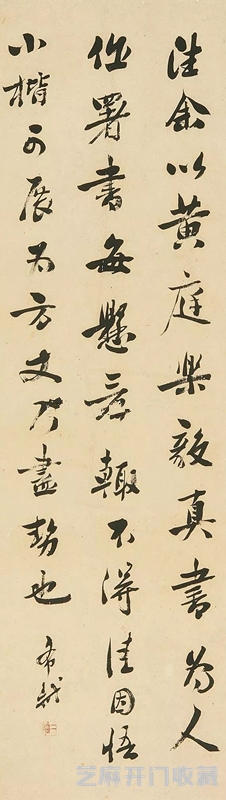 往余以黃庭樂毅真書為人
作署書每懸看輒不得佳因悟
小楷可展為方丈乃盡勢也 希
芝麻开门收藏